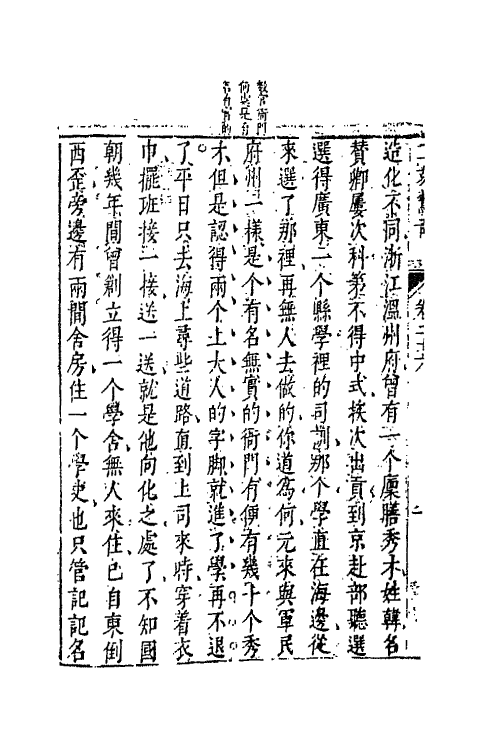 教官衙門
何嘗是有
名有實的
二刻驚奇 卷二十六 二
造化不同浙江溫州府曾有一个廩膳秀才姓韓名
贊卿屢次科第不得中式挨次出貢到京赴部聽選
選得廣東一个縣學裡的司訓那个學直在海邊從
來選了那裡再無人去做的你道為何元來與軍民
府州一樣是个有名無實的衙門有便有幾十个秀
才但是認得兩个上大人的字脚就進了學再不退
了平日只去海上尋些道路直到上司來時穿着衣
巾擺班接一接送一送就是他向化之處了不知國
朝幾年間曾創立得一个學舍無人來住已自東倒
西歪旁邊有兩間舍房住一个學吏也只管記記名